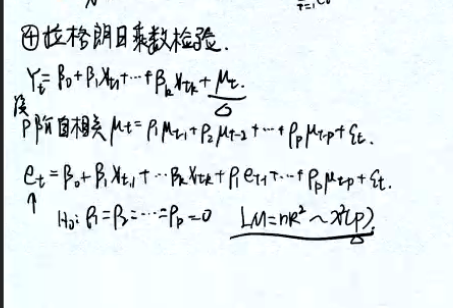 ④拉格朗日乘数检验.
Yₜ=β₀+β₁Xₜ₁+…+βₖXₜₖ+μₜ.
设
P阶自相关 μₜ=ρ₁μₜ₋₁+ρ₂μₜ₋₂+…+ρₚμₜ₋ₚ+εₜ.
eₜ=β₀+β₁Xₜ,₁+…βₖXₜₖ+ρ₁eₜ₋₁+…+ρₚμₜ₋ₚ+εₜ.
↑
H₀: ρ₁=ρ₂=…=ρₚ=0 LM=nR²~χ²(p).